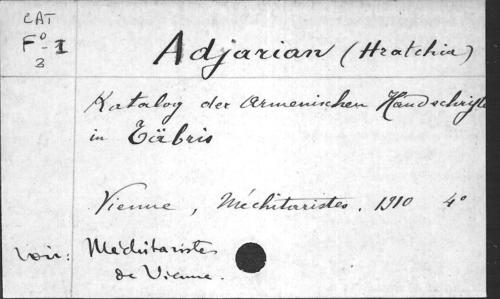 CAT
F° - I
3
Adjarian (Hratchia)
Katalog der Armenischen Handschrifte
in Täbris
Vienne, Méchitaristes. 1910 4°
voir: Méchitaristes
de Vienne.